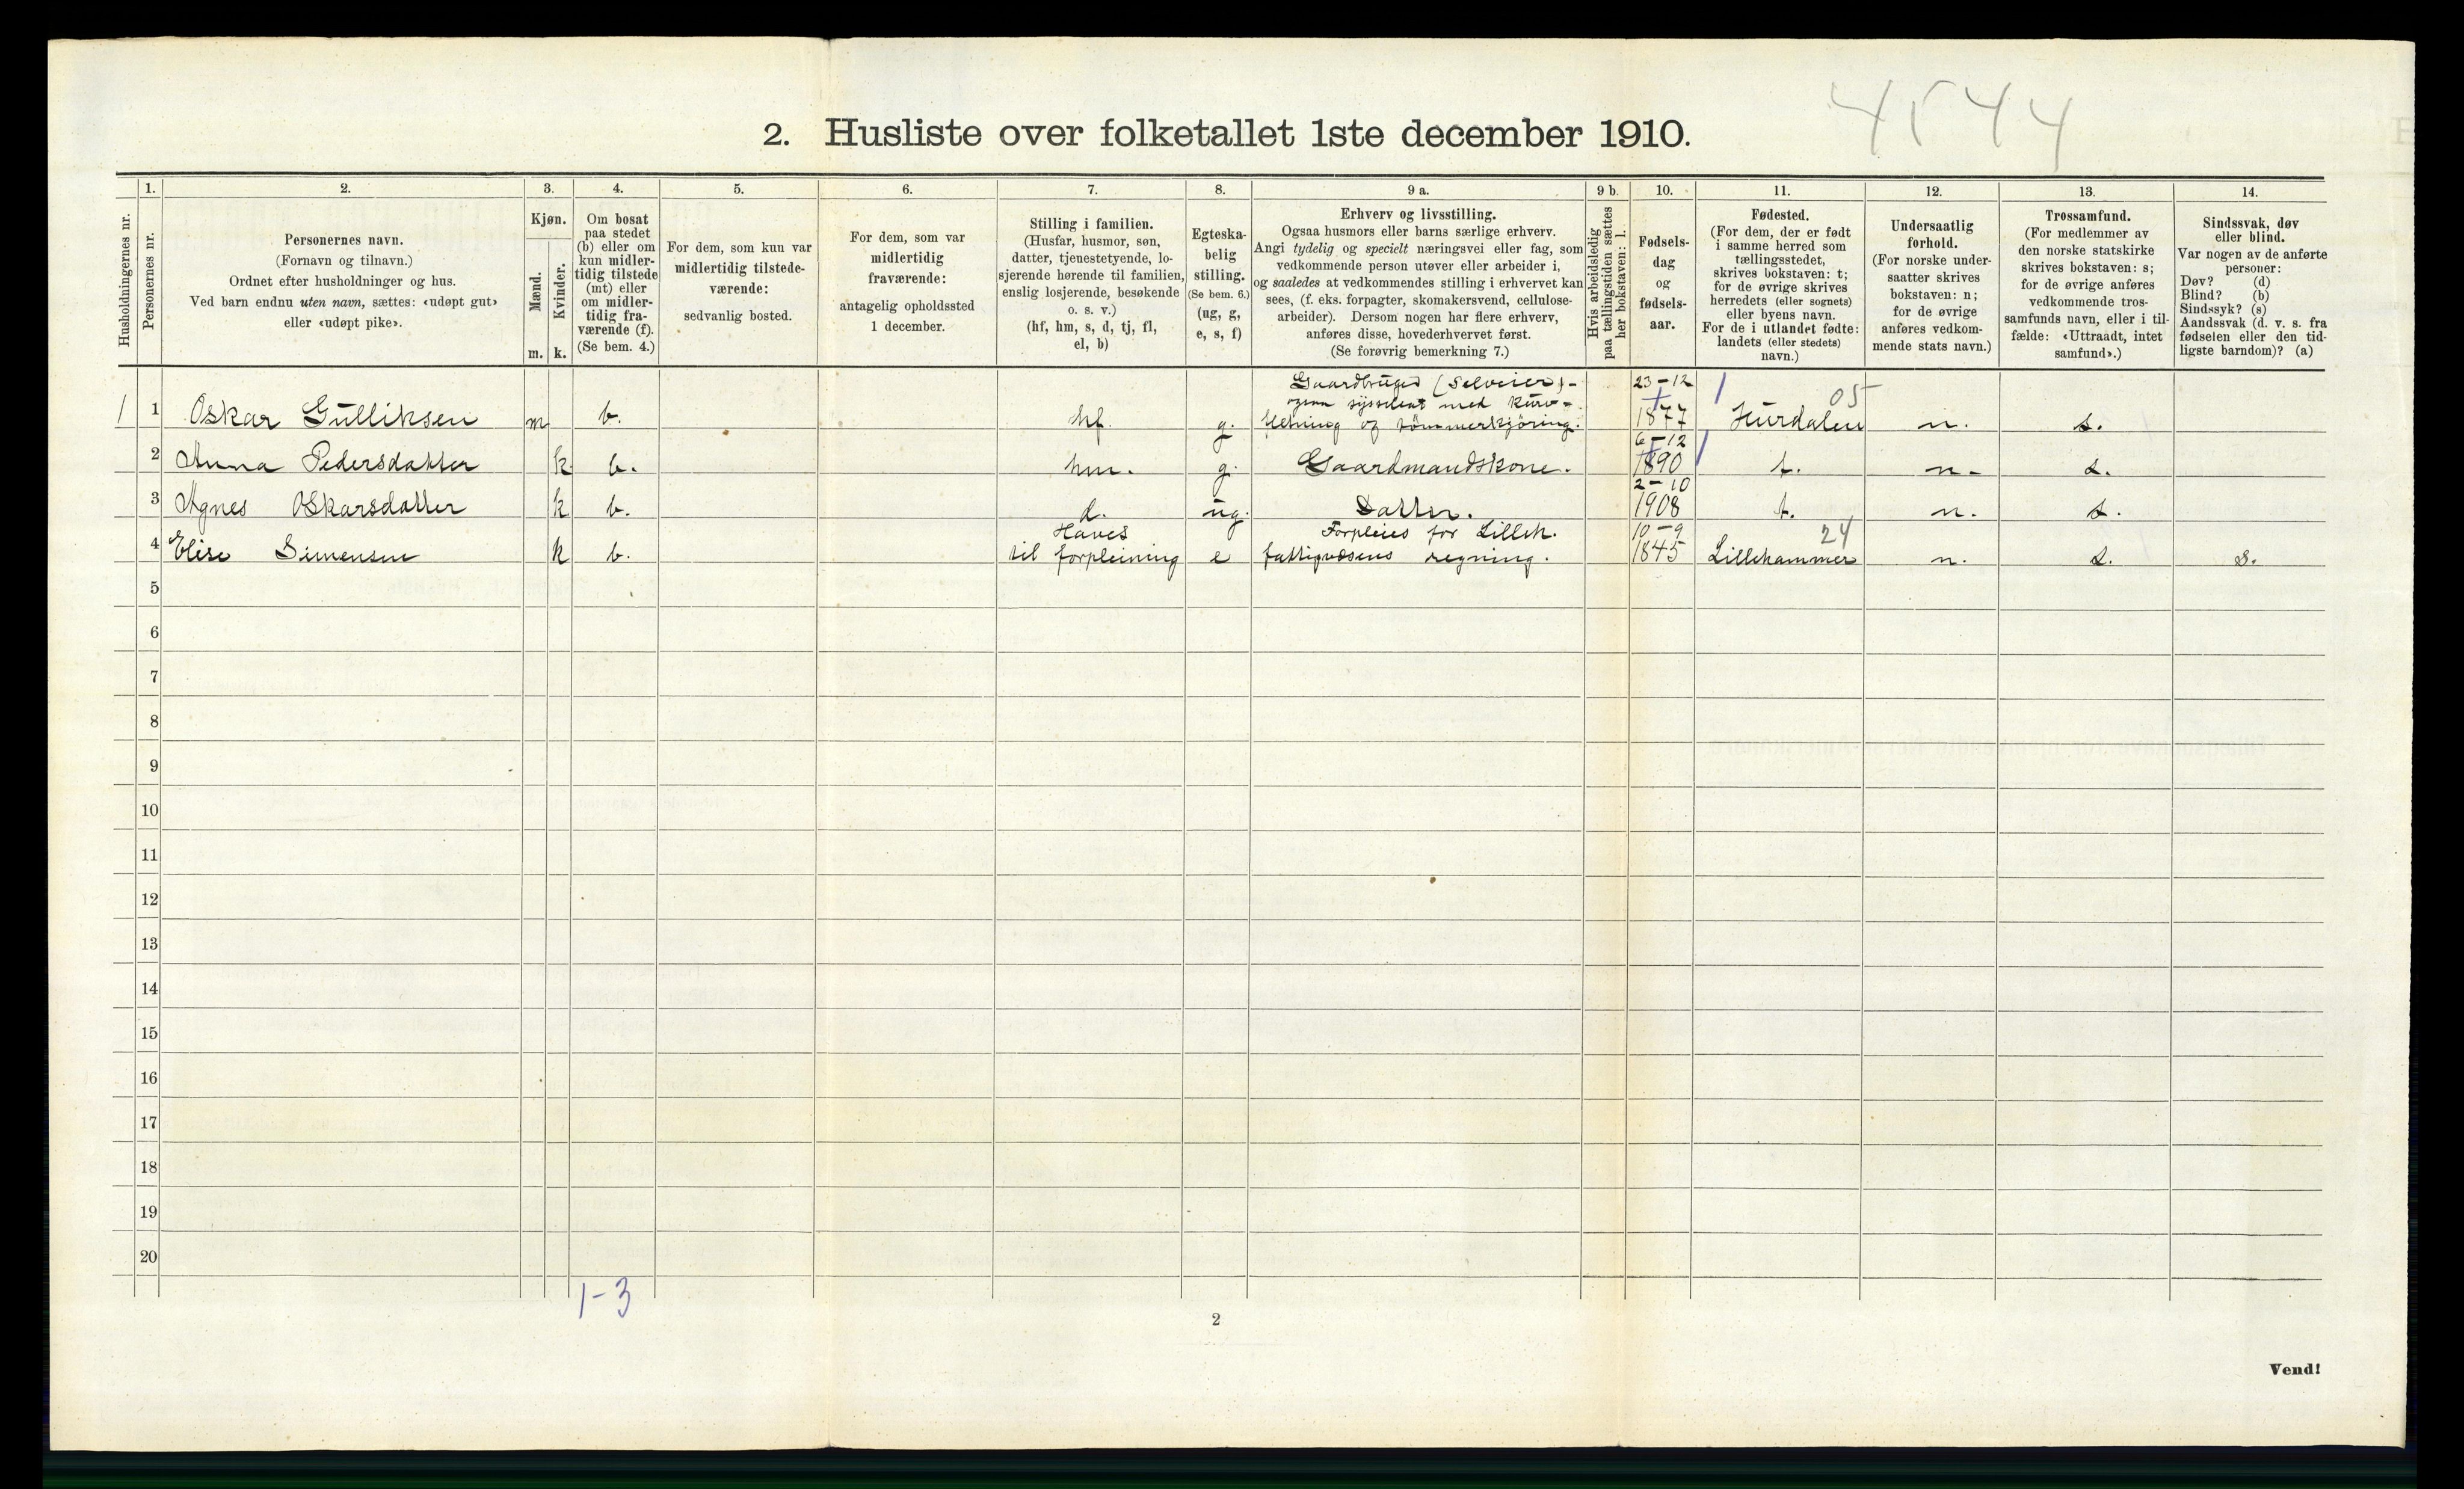 4544
2. Husliste over folketallet 1ste december 1910.
Husholdningernes nr.
1.
Personernes nr.
2.
Personernes navn.
(Fornavn og tilnavn.)
Ordnet efter husholdninger og hus.
Ved barn endnu uten navn, sættes: «udøpt gut»
eller «udøpt pike».
3.
Kjøn.
Mænd.
m.
Kvinder.
k.
4.
Om bosat
paa stedet
(b) eller om
kun midler-
tidig tilstede
(mt) eller
om midler-
tidig fra-
værende (f).
(Se bem. 4.)
5.
For dem, som kun var
midlertidig tilstede-
værende:
sedvanlig bosted.
6.
For dem, som var
midlertidig
fraværende:
antagelig opholdssted
1 december.
7.
Stilling i familien.
(Husfar, husmor, søn,
datter, tjenestetyende, lo-
sjerende hørende til familien,
enslig losjerende, besøkende
o. s. v.)
(hf, hm, s, d, tj, fl,
el, b)
8.
Egteska-
belig
stilling.
(Se bem. 6.)
(ug, g,
e, s, f)
9 a.
Erhverv og livsstilling.
Ogsaa husmors eller barns særlige erhverv.
Angi tydelig og specielt næringsvei eller fag, som
vedkommende person utøver eller arbeider i,
og saaledes at vedkommendes stilling i erhvervet kan
sees, (f. eks. forpagter, skomakersvend, cellulose-
arbeider). Dersom nogen har flere erhverv,
anføres disse, hovederhvervet først.
(Se forøvrig bemerkning 7.)
9 b.
Hvis arbeidsledig
paa tællingstiden sættes
her bokstaven: l.
10.
Fødsels-
dag
og
fødsels-
aar.
11.
Fødested.
(For dem, der er født
i samme herred som
tællingsstedet,
skrives bokstaven: t;
for de øvrige skrives
herredets (eller sognets)
eller byens navn.
For de i utlandet fødte:
landets (eller stedets)
navn.)
12.
Undersaatlig
forhold.
(For norske under-
saatter skrives
bokstaven: n;
for de øvrige
anføres vedkom-
mende stats navn.)
13.
Trossamfund.
(For medlemmer av
den norske statskirke
skrives bokstaven: s;
for de øvrige anføres
vedkommende tros-
samfunds navn, eller i til-
fælde: «Uttraadt, intet
samfund».)
14.
Sindssvak, døv
eller blind.
Var nogen av de anførte
personer:
Døv? (d)
Blind? (b)
Sindssyk? (s)
Aandssvak (d. v. s. fra
fødselen eller den tid-
ligste barndom)? (a)
Gaardbruger (Selveier) - 23-12 05
ogsaa sysselsat med kurv-
1 1 Oskar Gulliksen m b. hf. g. fletning og tömmerkjöring. 1877 Hurdalen n. s.
6-12
2 Anna Pedersdatter k b. hm. g. Gaardmandskone. 1890 t. n. s.
2-10
3 Agnes Oskarsdatter k b. d. ug. Datter. 1908 t. n. s.
Haves Forpleies for Lilleh. 10-9 24
4 Elise Simensen k b. til forpleining e fattigvæsens regning. 1845 Lillehammer n. s. s.
5
6
7
8
9
10
11
12
13
14
15
16
17
18
19
20
1-3
2
Vend!